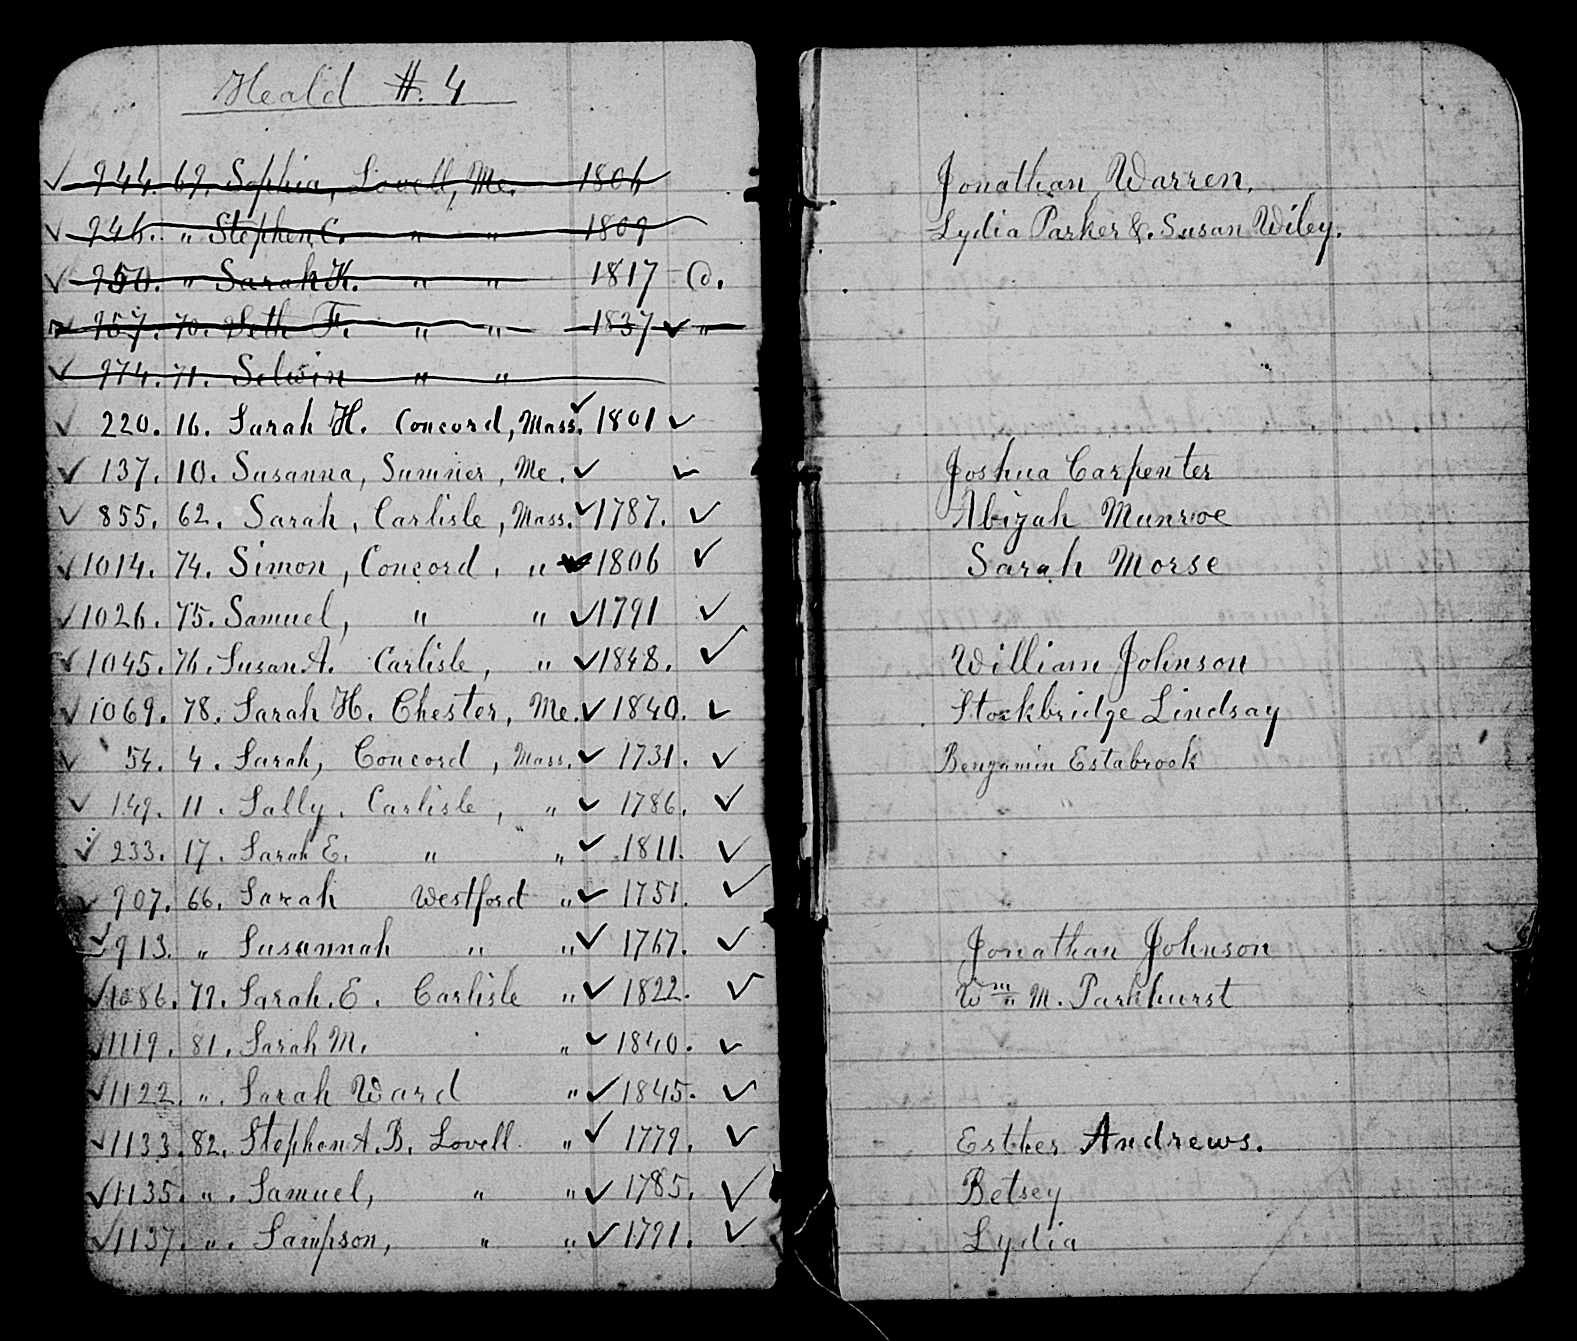 Heald #. 4
944. 69. Sophia, Lovell, Me. 1806 Jonathan Warren.
946. " Stephen C. " " 1809 Lydia Parker &. Susan Wiley.
950. " Sarah K. " " 1817 @.
957. 70. Seth F. " " 1837 ✓ "
974. 71. Selwin " "
✓ 220. 16. Sarah H. Concord, Mass. ✓ 1801 ✓
✓ 137. 10. Susanna, Sumner, Me. ✓ ✓ Joshua Carpenter
✓ 855. 62. Sarah, Carlisle, Mass. ✓ 1787. ✓ Abizah Munroe
✓ 1014. 74. Simon, Concord. " ✓ 1806 ✓ Sarah Morse
✓ 1026. 75. Samuel, " " ✓ 1791 ✓
✓ 1045. 76. Susan A. Carlisle, " ✓ 1848. ✓ William Johnson
✓ 1069. 78. Sarah H. Chester, Me. ✓ 1840. ✓ Stockbridge Lindsay
✓ 54. 4. Sarah, Concord, Mass. ✓ 1731. ✓ Benjamin Estabrook
✓ 149. 11. Sally. Carlisle, " ✓ 1786. ✓ "
✓ 233. 17. Sarah E. " " ✓ 1811. ✓
✓ 907. 66. Sarah Westford " ✓ 1751. ✓
✓ 913. " Susannah " " ✓ 1767. ✓ Jonathan Johnson
✓ 1086. 79. Sarah. E. Carlisle " ✓ 1822. ✓ Wm M. Parkhurst
✓ 1119. 81. Sarah M. " ✓ 1840. ✓
✓ 1122. ". Sarah Ward " ✓ 1845. ✓
✓ 1133. 82. Stephen A. B. Lovell " ✓ 1779. ✓ Esther Andrews.
✓ 1135. ". Samuel, " " ✓ 1785. ✓ Betsey
✓ 1137. ". Sampson, " " ✓ 1791. ✓ Lydia